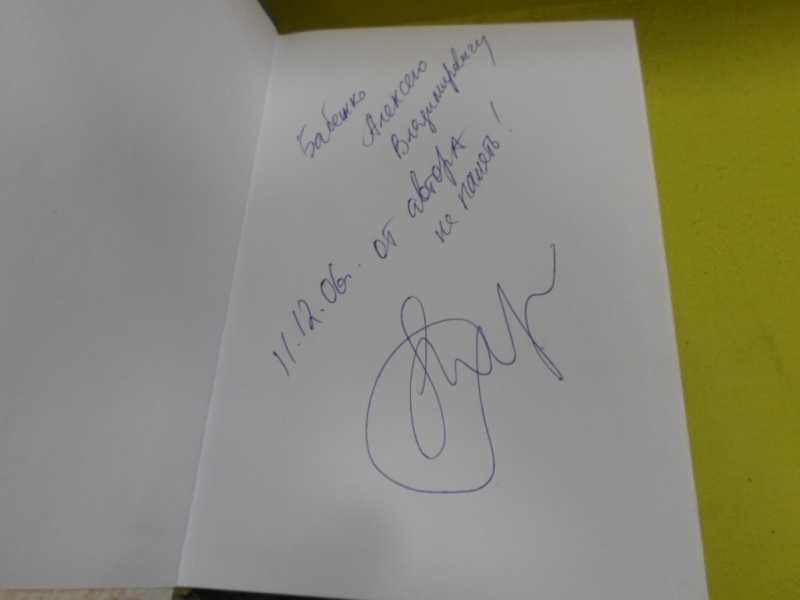 Бабенко
Алексею
Владимировичу
от автора
на память!
11.12.06г.